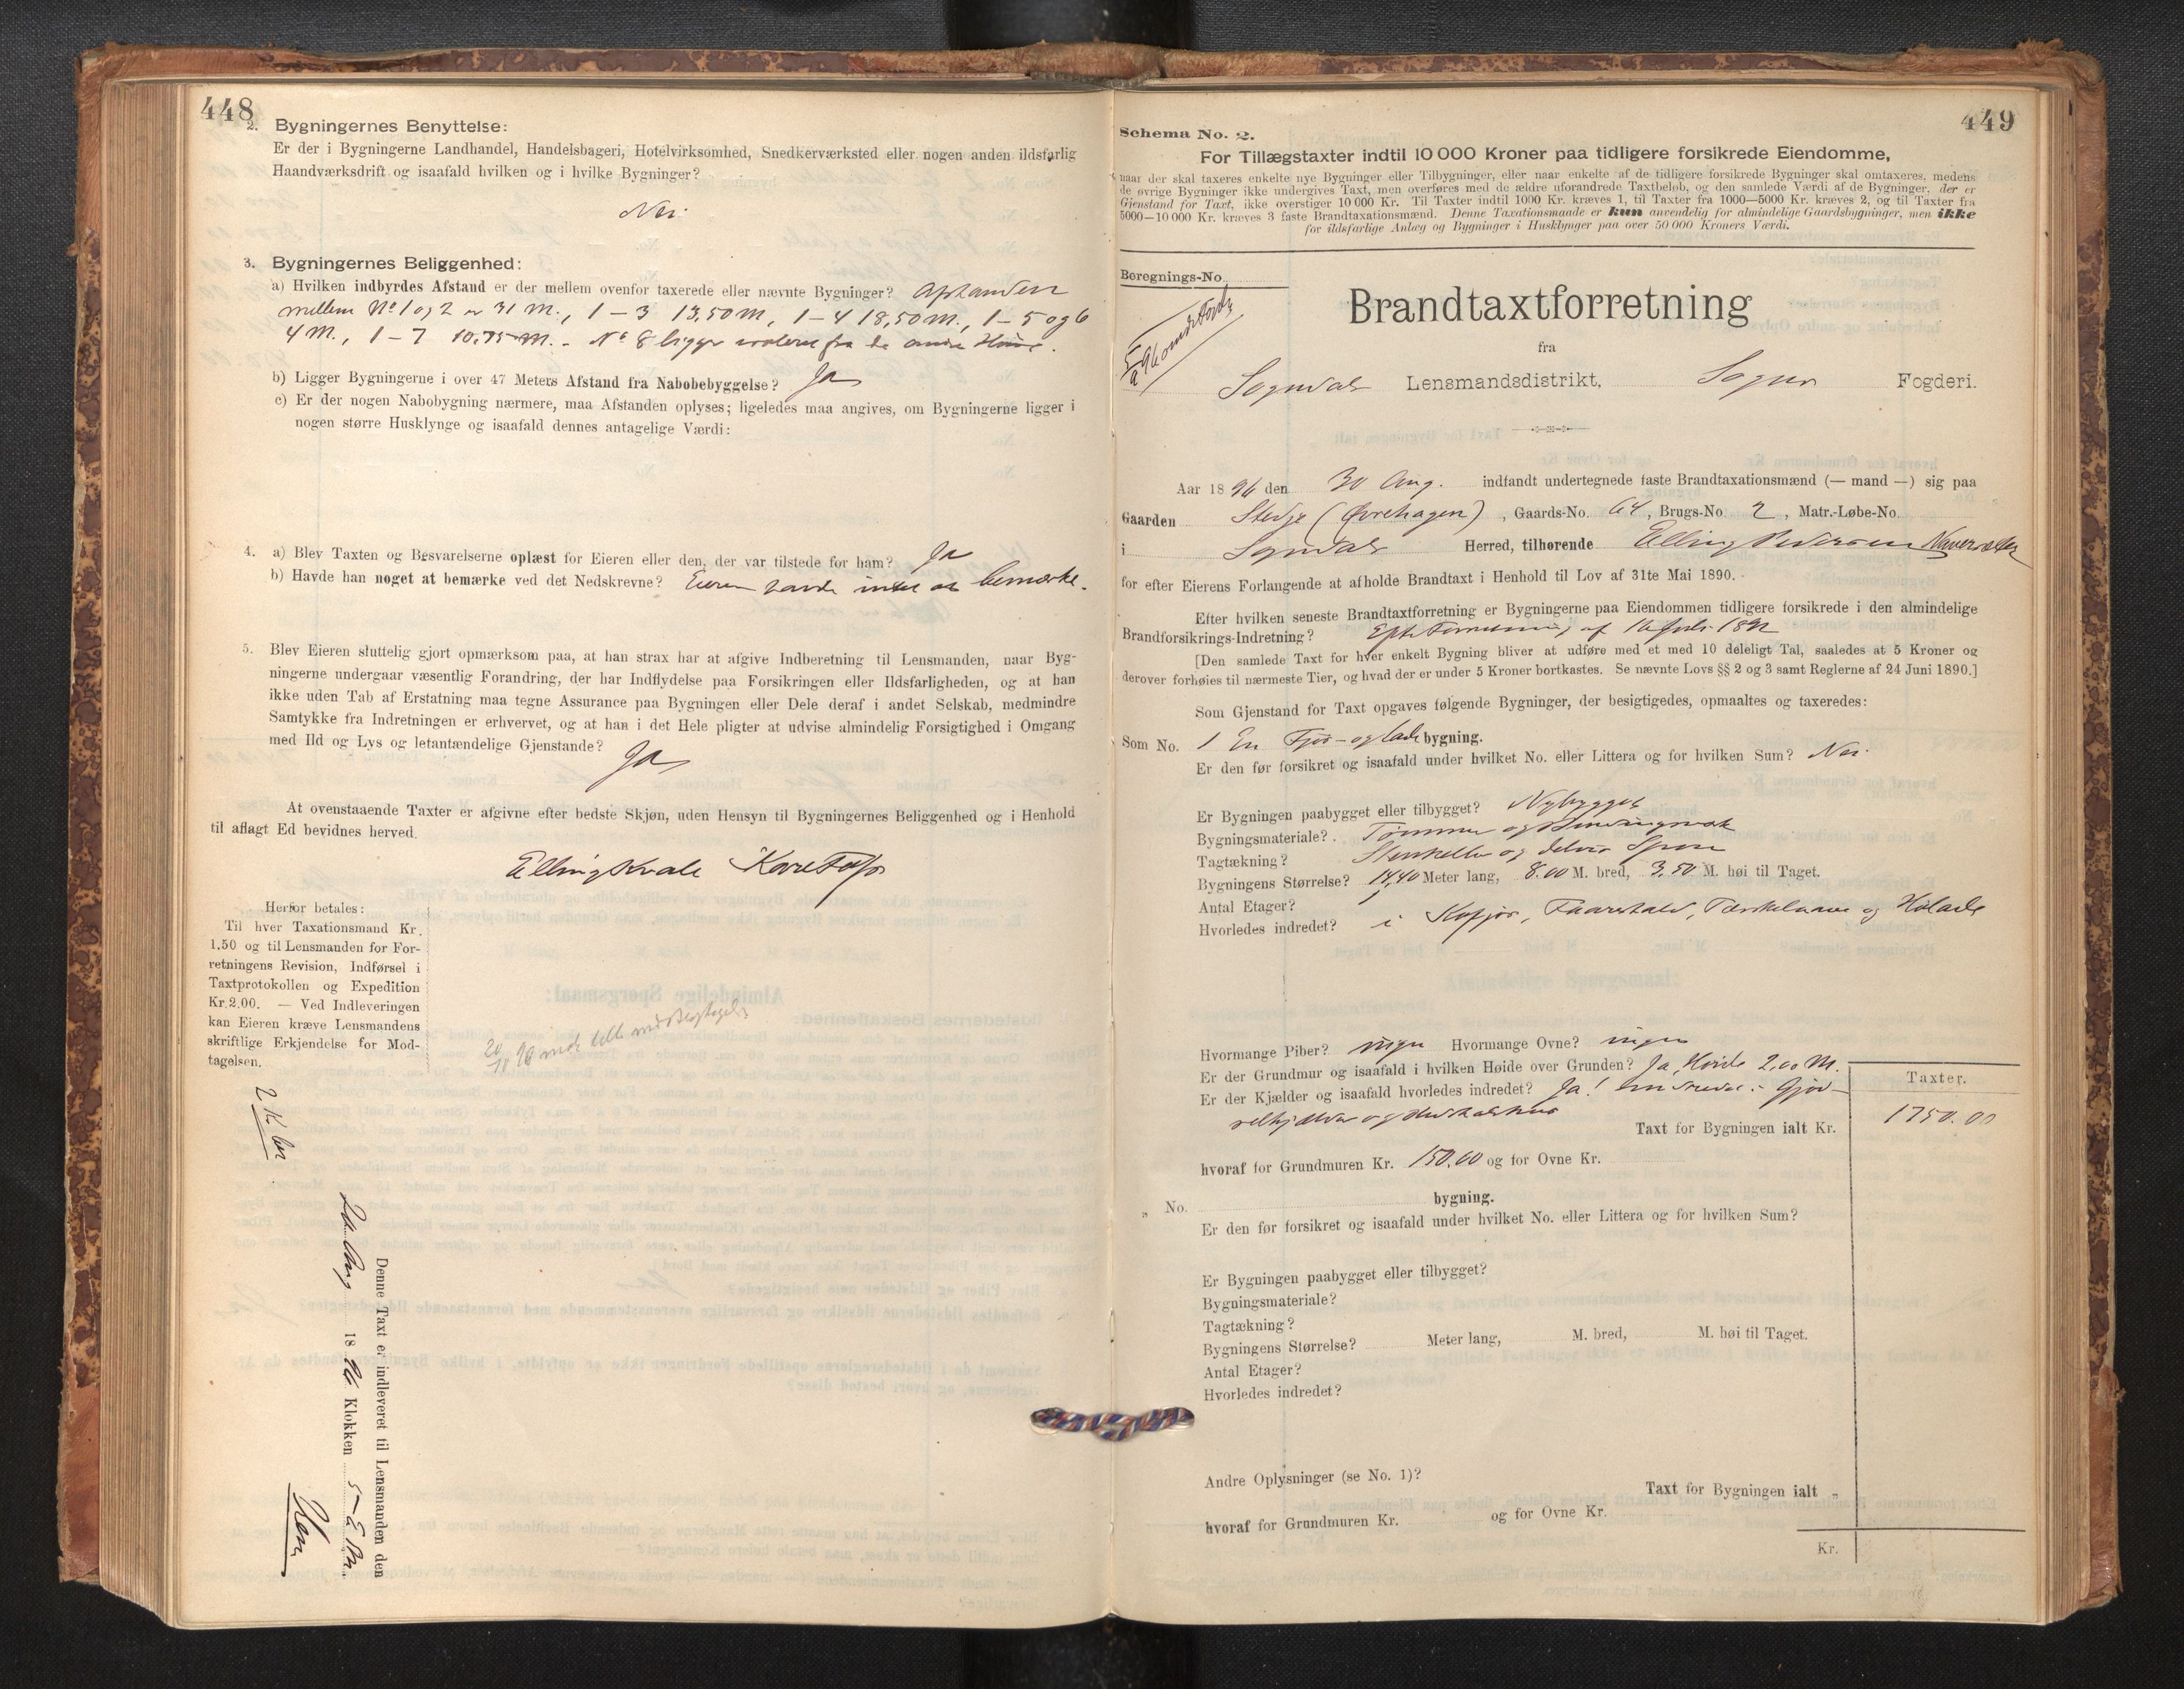 448
2. Bygningernes Benyttelse:
Er der i Bygningerne Landhandel, Handelsbageri, Hotelvirksomhed, Snedkerværksted eller nogen anden ildsfarlig
Haandværksdrift og isaafald hvilken og i hvilke Bygninger?
Nei
3. Bygningernes Beliggenhed:
a) Hvilken indbyrdes Afstand er der mellem ovenfor taxerede eller nævnte Bygninger? Afstanden
mellem No 1 og 2 er 31 M., 1 – 3 13,50 M, 1 – 4 18,50 M., 1 – 5 og 6
4 M., 1 – 7 10.75 M. - No 8 ligger isoleret fra de andre Huse.
b) Ligger Bygningerne i over 47 Meters Afstand fra Nabobebyggelse? Ja
c) Er der nogen Nabobygning nærmere, maa Afstanden oplyses; ligeledes maa angives, om Bygningerne ligger i
nogen større Husklynge og isaafald dennes antagelige Værdi:
4. a) Blev Taxten og Besvarelserne oplæst for Eieren eller den, der var tilstede for ham? Ja
b) Havde han noget at bemærke ved det Nedskrevne? Eieren havde intet at bemærke.
5. Blev Eieren sluttelig gjort opmærksom paa, at han strax har at afgive Indberetning til Lensmanden, naar Byg-
ningerne undergaar væsentlig Forandring, der har Indflydelse paa Forsikringen eller Ildsfarligheden, og at han
ikke uden Tab af Erstatning maa tegne Assurance paa Bygningen eller Dele deraf i andet Selskab, medmindre
Samtykke fra Indretningen er erhvervet, og at han i det Hele pligter at udvise almindelig Forsigtighed i Omgang
med Ild og Lys og letantændelige Gjenstande?
Ja
At ovenstaaende Taxter er afgivne efter bedste Skjøn, uden Hensyn til Bygningernes Beliggenhed og i Henhold
til aflagt Ed bevidnes herved.
Elling Kvale
Herfor betales:
Til hver Taxationsmand Kr.
1.50 og til Lensmanden for For-
retningens Revision, Indførsel i
Taxtprotokollen og Expedition
Kr. 2.00. — Ved Indleveringen
kan Eieren kræve Lensmandens
skriftlige Erkjendelse for Mod-
tagelsen.
Denne Taxt er indleveret til Lensmanden den
Aug 1896 Klokken 5
449
Schema No. 2.
For Tillægstaxter indtil 10 000 Kroner paa tidligere forsikrede Eiendomme,
naar der skal taxeres enkelte nye Bygninger eller Tilbygninger, eller naar enkelte af de tidligere forsikrede Bygninger skal omtaxeres, medens
de øvrige Bygninger ikke undergives Taxt, men overføres med de ældre uforandrede Taxtbeløb, og den samlede Værdi af de Bygninger, der er
Gjenstand for Taxt, ikke overstiger 10 000 Kr. Til Taxter indtil 1000 Kr. kræves 1, til Taxter fra 1000—5000 Kr. kræves 2, og til Taxter fra
5000—10 000 Kr. kræves 3 faste Brandtaxationsmænd. Denne Taxationsmaade er kun anvendelig for almindelige Gaardsbygninger, men ikke
for ildsfarlige Anlæg og Bygninger i Husklynger paa over 50 000 Kroners Værdi.
Beregnings-No.
Brandtaxtforretning
fra
Sogndals Lensmandsdistrikt, Sogns Fogderi.
Aar 1896 den 30 Aug. indfandt undertegnede faste Brandtaxationsmænd (— mand —) sig paa
Gaarden Stedje (Øvrehagen), Gaards-No. 64, Brugs-No. 2, Matr.-Løbe-No.
i Sogndals Herred, tilhørende Elling Pedersen
for efter Eierens Forlangende at afholde Brandtaxt i Henhold til Lov af 31te Mai 1890.
Efter hvilken seneste Brandtaxtforretning er Bygningerne paa Eiendommen tidligere forsikrede i den almindelige
Brandforsikrings-Indretning? Efter Forretning af 16 Juli 1892
[Den samlede Taxt for hver enkelt Bygning bliver at udføre med et med 10 deleligt Tal, saaledes at 5 Kroner og
derover forhøies til nærmeste Tier, og hvad der er under 5 Kroner bortkastes. Se nævnte Lovs §§ 2 og 3 samt Reglerne af 24 Juni 1890.]
Som Gjenstand for Taxt opgaves følgende Bygninger, der besigtigedes, opmaaltes og taxeredes:
Som No. 1 En Fjøs- og lade bygning.
Er den før forsikret og isaafald under hvilket No. eller Littera og for hvilken Sum? Nei
Er Bygningen paabygget eller tilbygget? Nybygget
Bygningsmateriale? Tømmer og Bindingsverk
Tagtækning? Stenheller og delvis Spon
Bygningens Størrelse? 14,40 Meter lang, 8.00 M. bred, 3,50 M. høi til Taget.
Antal Etager? 1
Hvorledes indredet? i Kofjøs, Faarestald, Tærskelaave og Hølade
Hvormange Piber? ingen Hvormange Ovne? ingen
Er der Grundmur og isaafald i hvilken Høide over Grunden? Ja, Høide 2,00 M.
Er der Kjælder og isaafald hvorledes indredet? Ja! indredet i Gjød-
selkjelder og
Taxter.
Taxt for Bygningen ialt Kr. 1750.00
hvoraf for Grundmuren Kr. 150.00 og for Ovne Kr.
„ No. bygning.
Er den før forsikret og isaafald under hvilket No. eller Littera og for hvilken Sum?
Er Bygningen paabygget eller tilbygget?
Bygningsmateriale?
Tagtækning?
Bygningens Størrelse? Meter lang, M. bred, M. høi til Taget.
Antal Etager?
Hvorledes indredet?
Andre Oplysninger (se No. 1)?
Taxt for Bygningen ialt „
hvoraf for Grundmuren Kr. og for Ovne Kr.
Kr.